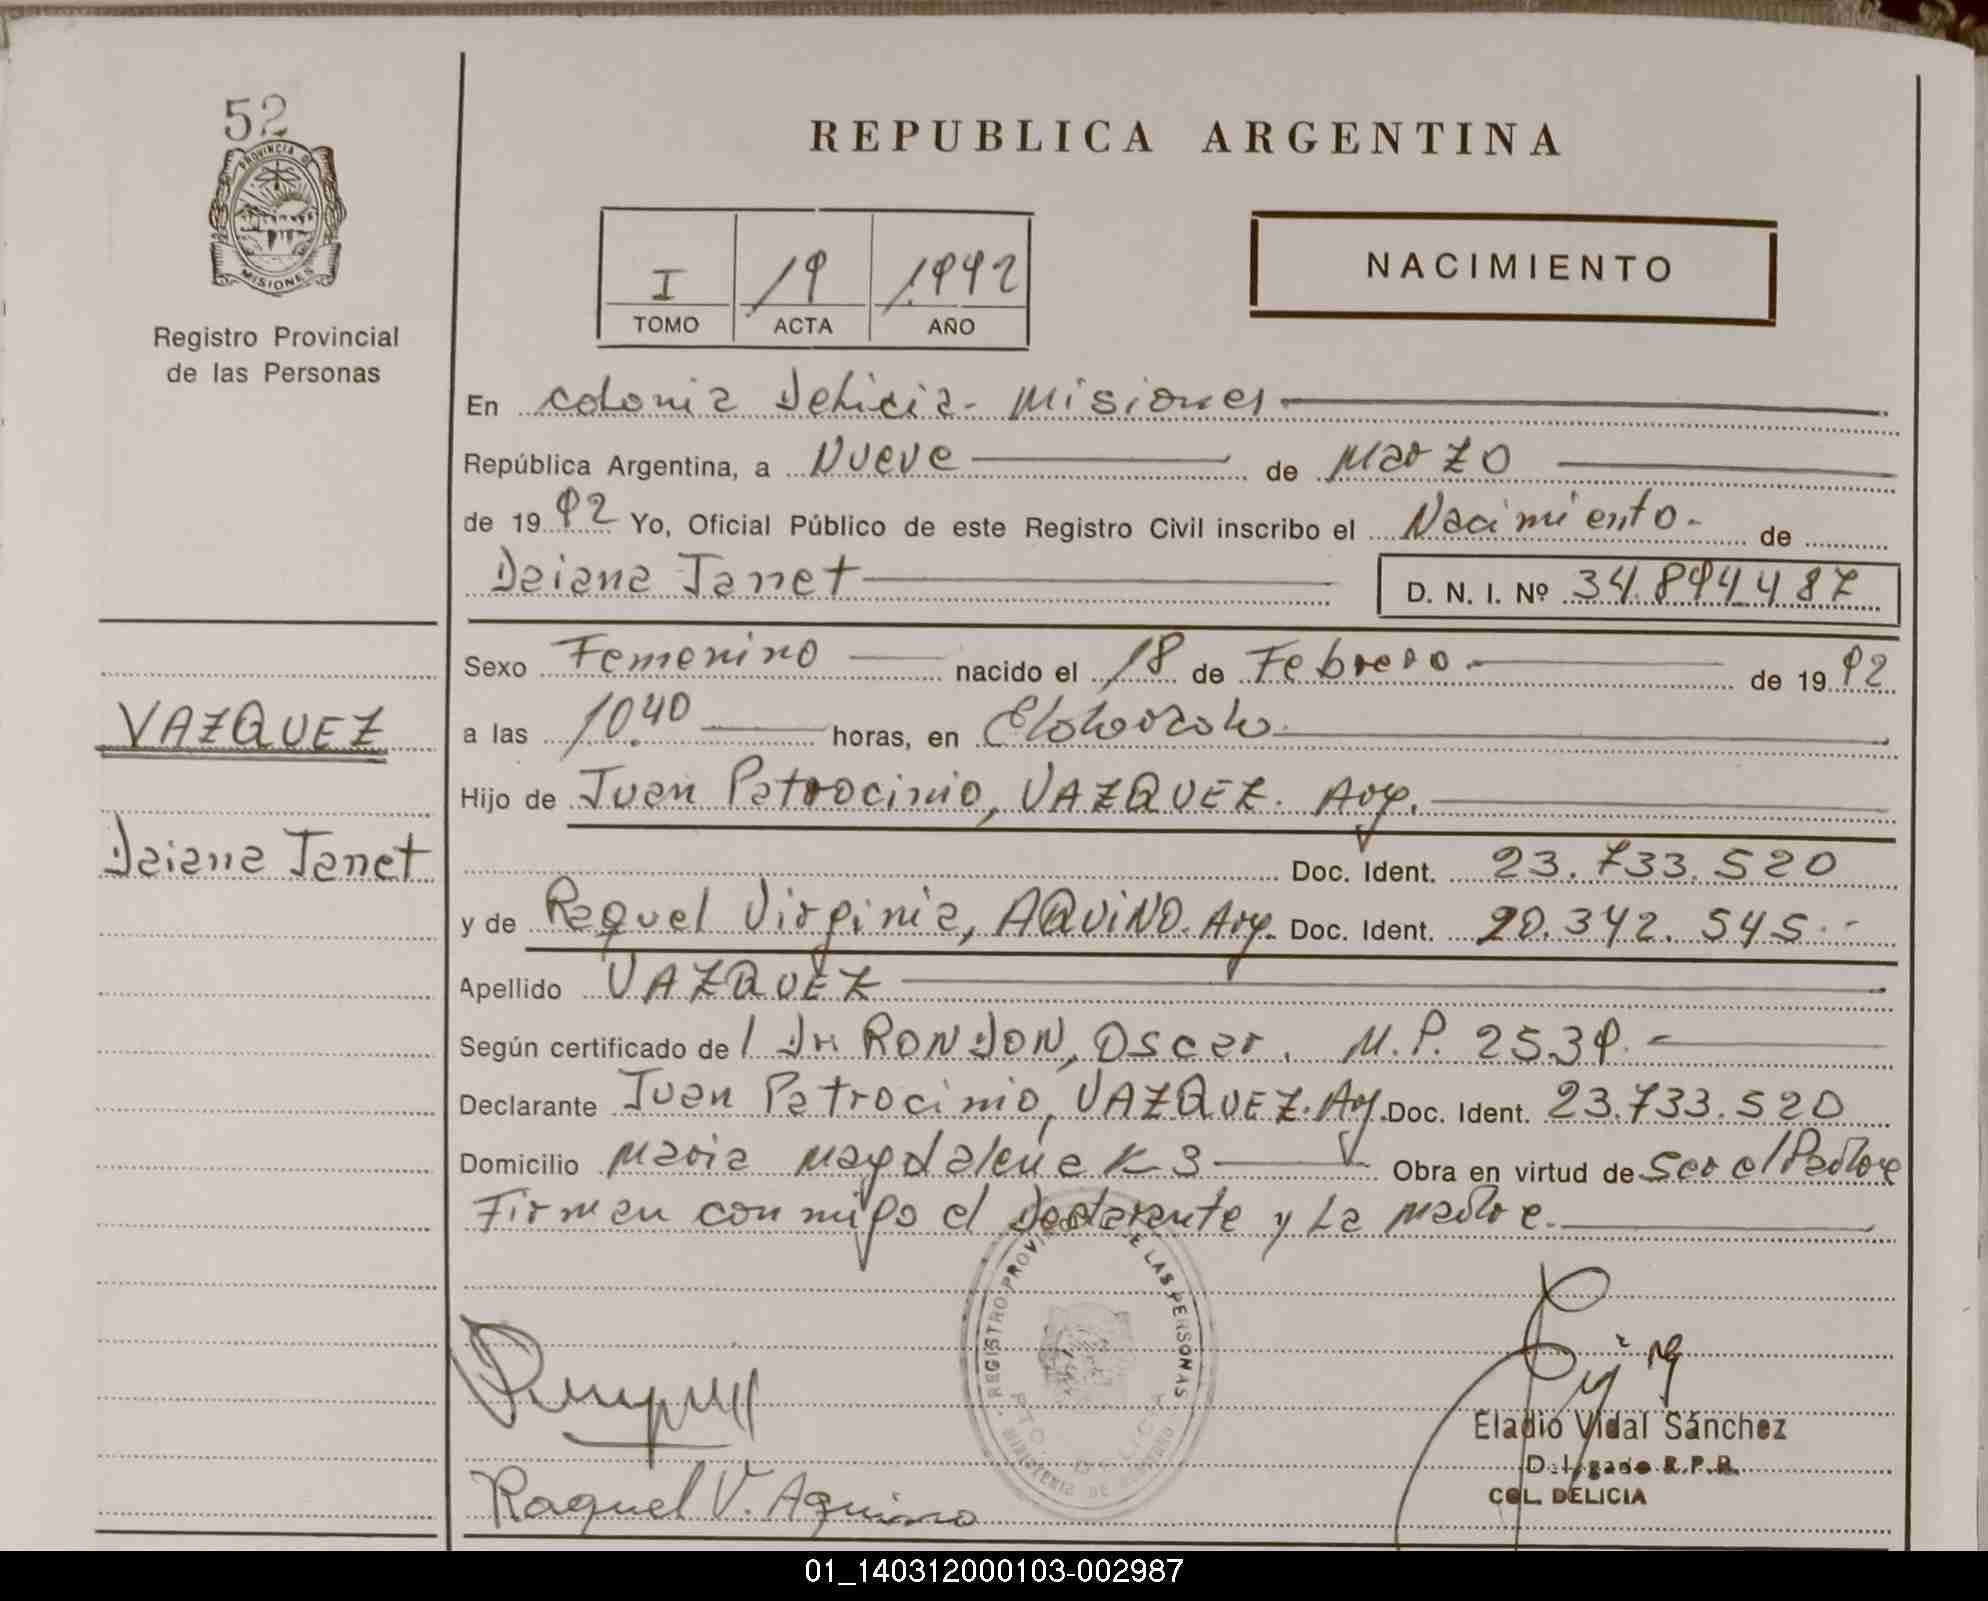 52
PROVINCIA DE
MISIONES
Registro Provincial
de las Personas
REPUBLICA ARGENTINA
I 19 1992
TOMO ACTA AÑO
NACIMIENTO
En Colonia Delicia - Misiones
República Argentina, a Nueve de Marzo
de 19 92 Yo, Oficial Público de este Registro Civil inscribo el Nacimiento - de
Daiana Janet D. N. I. Nº 34.894.487
Sexo Femenino nacido el 18 de Febrero de 19 92
a las 10.40 horas, en Eldorado
Hijo de Juan Patrocinio, VAZQUEZ. Arg.
Doc. Ident. 23.733.520
y de Raquel Virginia, AQUINO. Arg. Doc. Ident. 20.342.545.-
Apellido VAZQUEZ
Según certificado de l Dr RONDON, Oscar. M.P. 2539.-
Declarante Juan Patrocinio, VAZQUEZ. Arg. Doc. Ident. 23.733.520
Domicilio Maria Magdalena K 3 Obra en virtud de Ser el Padre
Firman conmigo el Declarante y La Madre.
VAZQUEZ
Daiana Janet
REGISTRO PROVINCIAL DE LAS PERSONAS
PTO. DELICIA
MINISTERIO DE GOBIERNO
Raquel V. Aquino
Eladio Vidal Sánchez
Delegado R.P.P.
COL. DELICIA
01_140312000103-002987